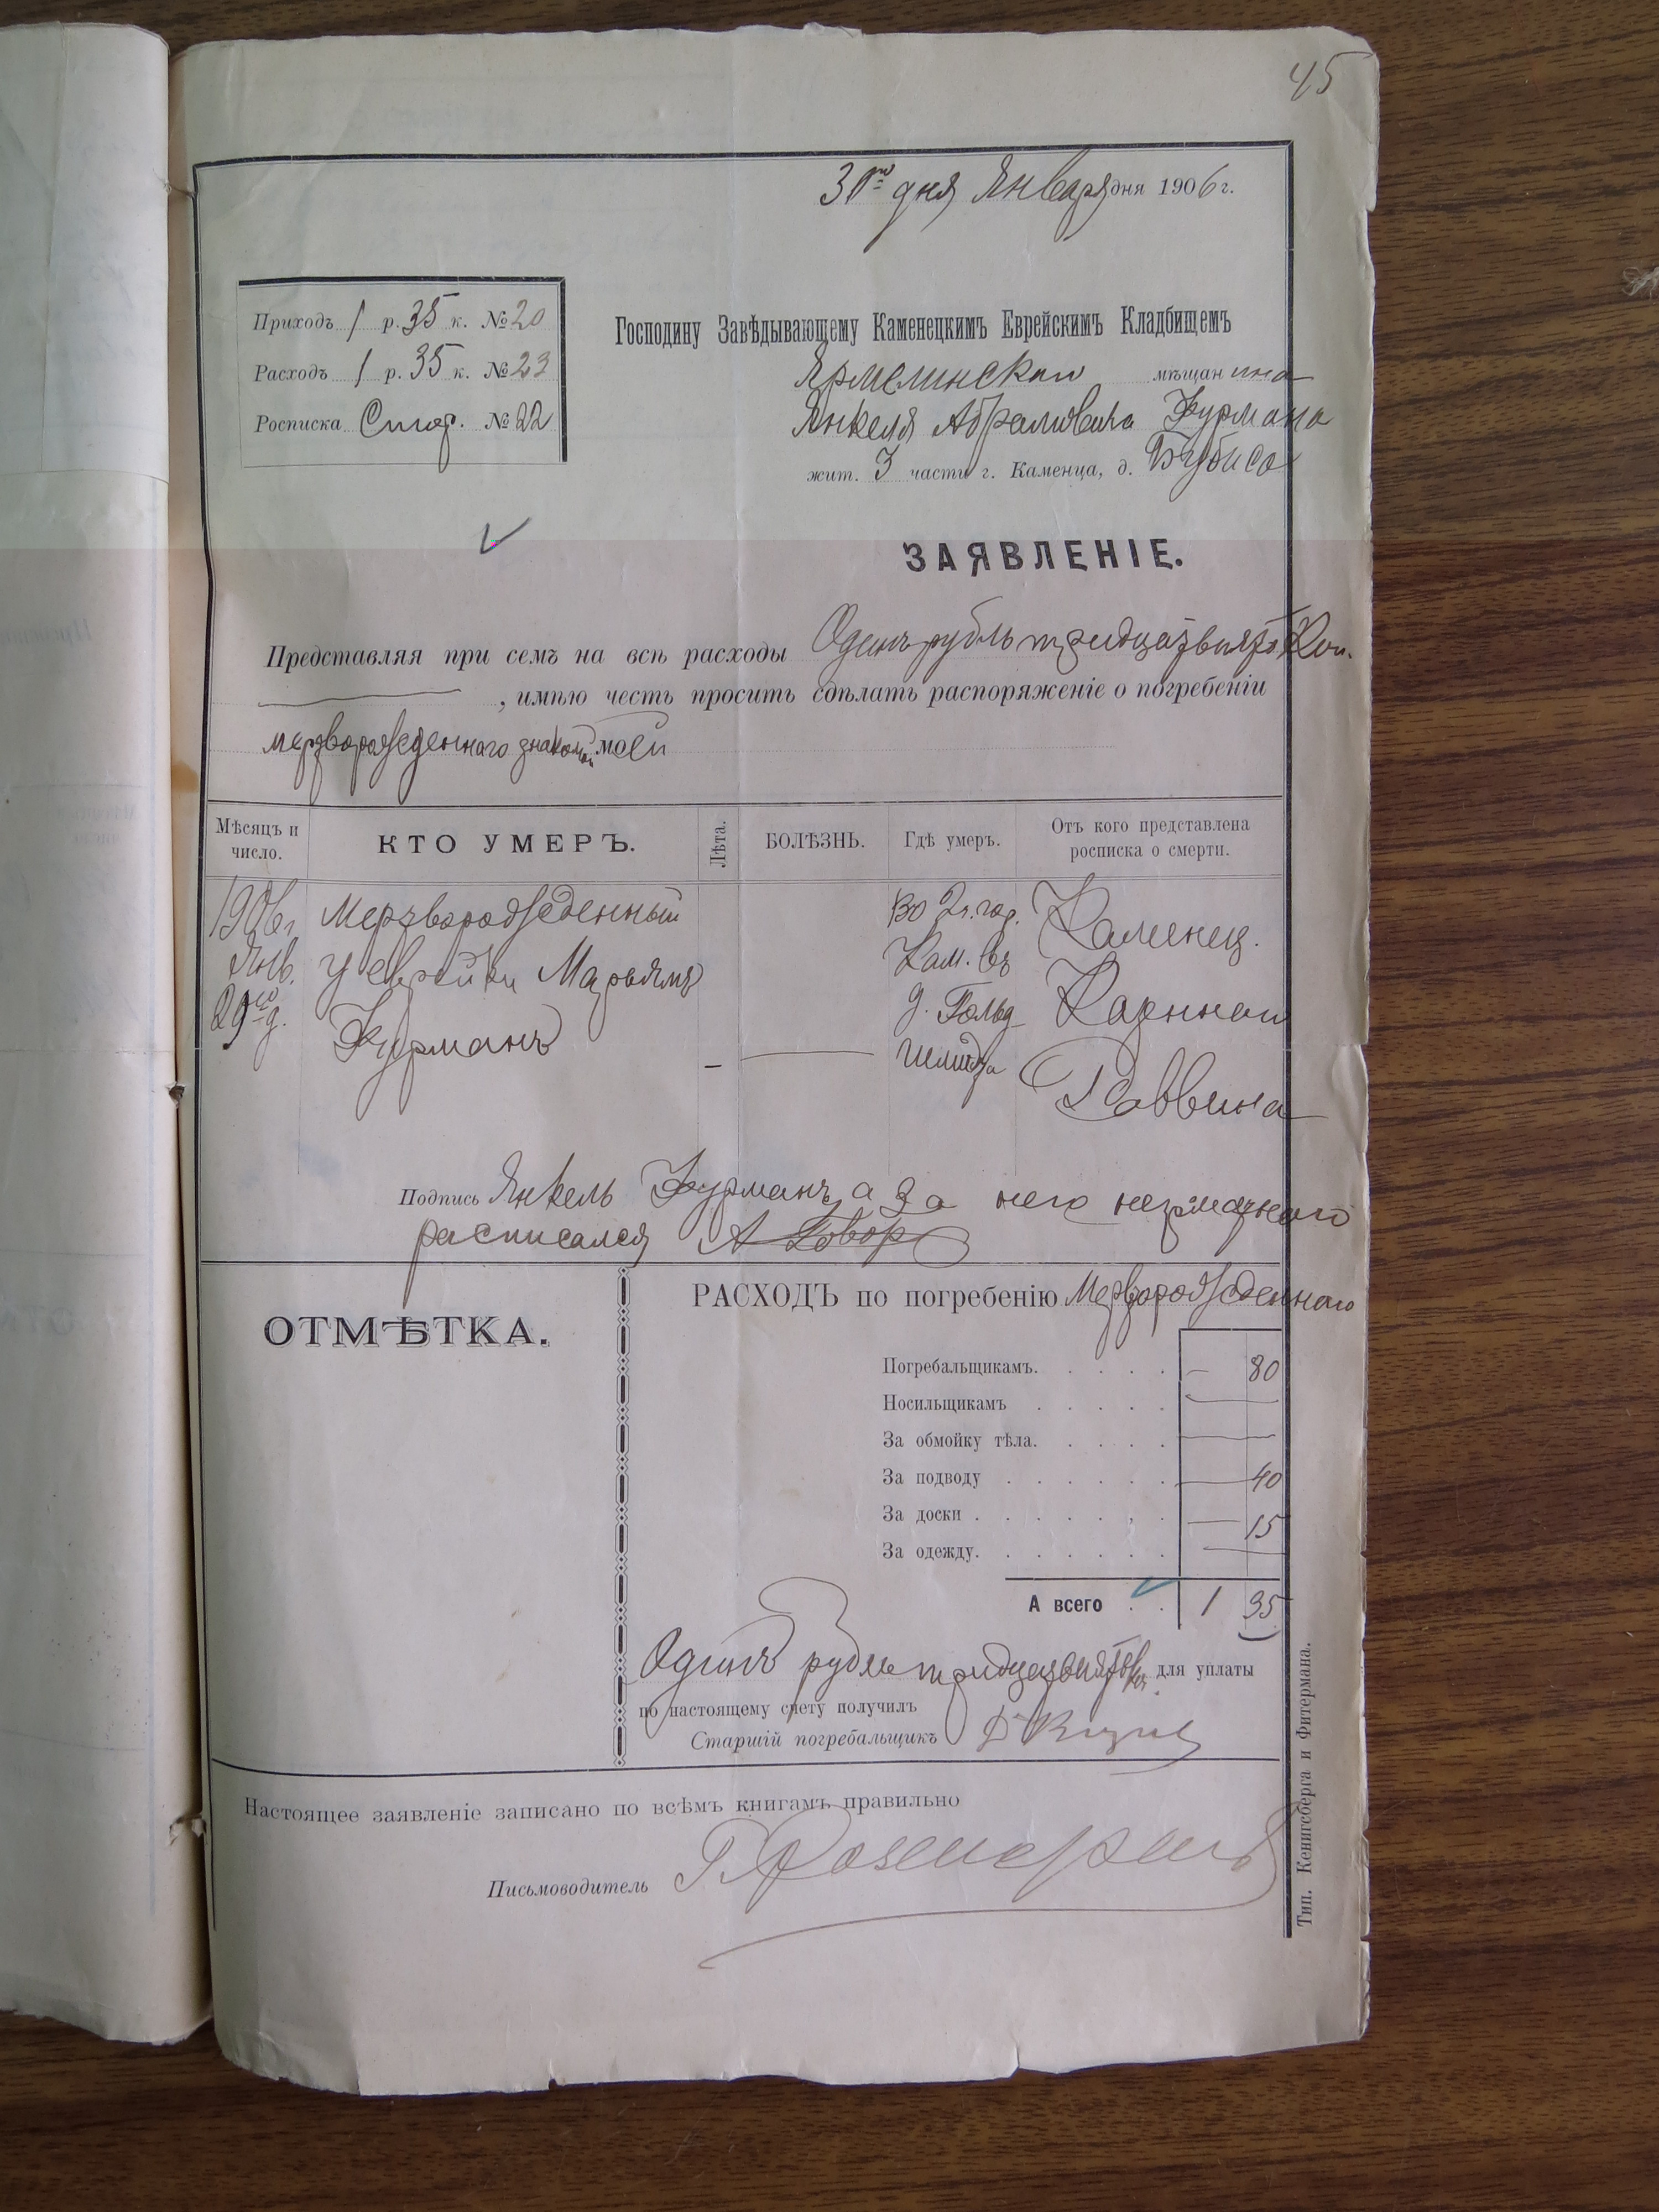 45
30го дня Января дня 1906 г.
Приходъ 1 р. 35 к. № 20
Расходъ 1 р. 35 к. № 23
Росписка № 22
Господину Завѣдывающему Каменецкимъ Еврейскимъ Кладбищемъ
Ярмелинскаго мѣщанина
Янкеля Абрамовича Фурмана
жит. 3 части г. Каменца, д. Бубиса
ЗАЯВЛЕНІЕ.
Представляя при семъ на всѣ расходы Одинъ рубль тридцать пять Коп.
, имѣю честь просить сдѣлать распоряженіе о погребеніи
мертворожденнаго знакомой моей
Мѣсяцъ и число.
КТО УМЕРЪ.
Лѣта.
БОЛѢЗНЬ.
Гдѣ умеръ.
Отъ кого представлена росписка о смерти.
1906 г. Янв. 29го д.
Мертворожденный
у еврейки Марьямъ
Фурманъ
Во 2 ч. гор.
Кам. въ
д. Гольд
Каменец.
Казеннаго
Раввина
Подпись Янкель Фурманъ, а за него неграмотнаго
расписался А Говор
ОТМѢТКА.
РАСХОДЪ по погребенію Мертворожденнаго
Погребальщикамъ. — 80
Носильщикамъ —
За обмойку тѣла. —
За подводу — 40
За доски — 15
За одежду. —
А всего 1 35
Одинъ рубль тридцать пять коп. для уплаты
по настоящему счету получилъ
Старшій погребальщикъ
Настоящее заявленіе записано по всѣмъ книгамъ правильно
Письмоводитель
Тип. Кенигсберга и Фитермана.